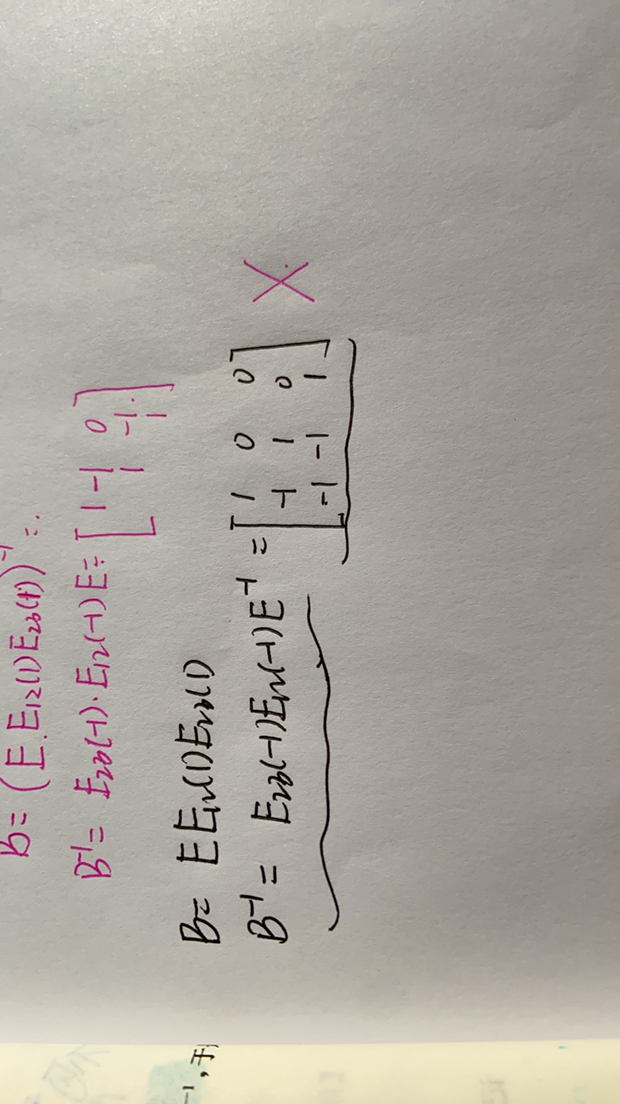 B = (E·E₁₂(1)E₂₃(1))⁻¹ = ..
B⁻¹ = E₂₃(-1)·E₁₂(-1)E = [1 -1 0
1 -1.
1]
B = E E₁₂(1)E₂₃(1)
B⁻¹ = E₂₃(-1)E₁₂(-1)E⁻¹ = [1 0 0
-1 1 0
-1 -1 1] X
⁻¹,于